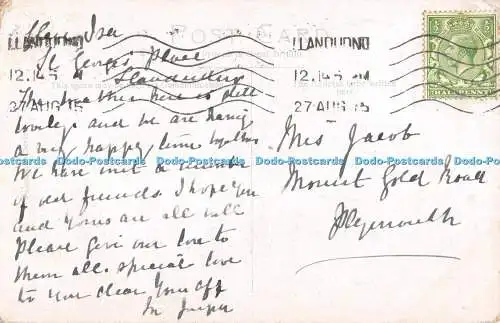 POST CARD
LLANDUDNO
12.145 M
27 AUG 15
LLANDUDNO
12.145 AM
27 AUG 15
HALFPENNY
St George's Place
Llandudno
The weather here is still
lovely and we are having
a very happy time together
We have met a number
of old friends. I hope you
and yours are all well
Please give our love to
them all. special love
to your dear
Mrs Jacob
Mount Gold Road
Plymouth
Dodo-Postcards Dodo-Postcards Dodo-Postcards Dodo-Postcards Dodo-Postcards Dodo-Postcards